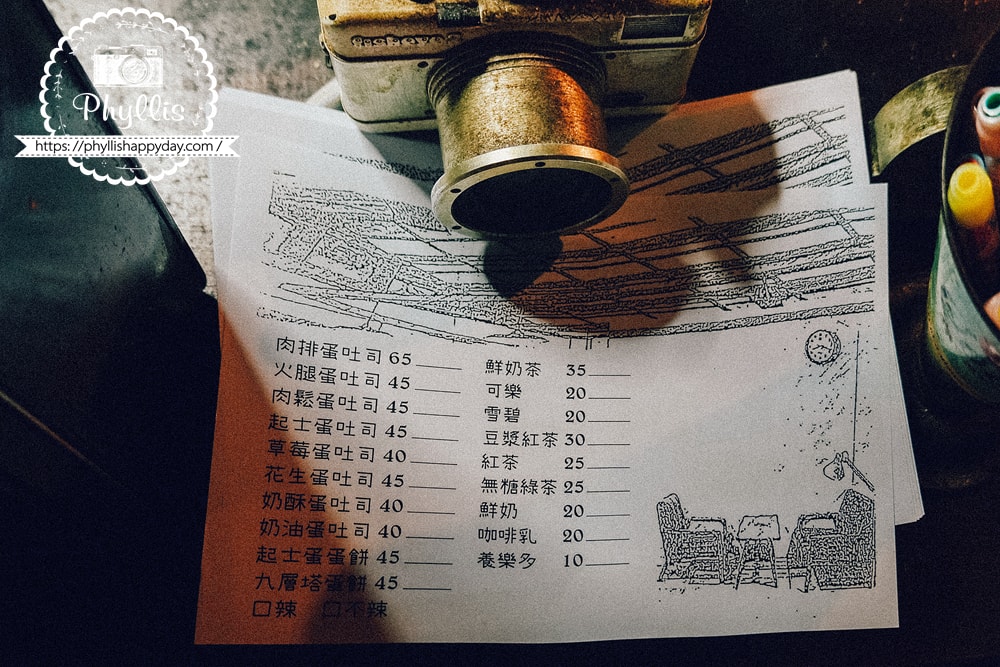 Phyllis
https://phyllishappyday.com/
肉排蛋吐司 65
火腿蛋吐司 45
肉鬆蛋吐司 45
起士蛋吐司 45
草莓蛋吐司 40
花生蛋吐司 45
奶酥蛋吐司 40
奶油蛋吐司 40
起士蛋蛋餅 45
九層塔蛋餅 45
□辣 □不辣
鮮奶茶 35
可樂 20
雪碧 20
豆漿紅茶 30
紅茶 25
無糖綠茶 25
鮮奶 20
咖啡乳 20
養樂多 10